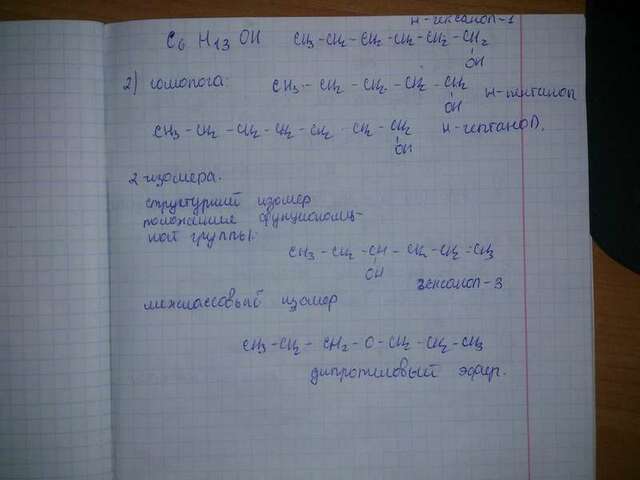 н-гексанол-1
C6 H13 OH CH3 - CH2 - CH2 - CH2 - CH2 - CH2
OH
2) гомолога: CH3 - CH2 - CH2 - CH2 - CH2
OH н-пентанол
CH3 - CH2 - CH2 - CH2 - CH2 - CH2 - CH2
OH н-гептанол.
2 изомера.
структурный изомер
положение функциональ-
ной группы.
CH3 - CH2 - CH - CH2 - CH2 - CH3
OH
гексанол-3
межклассовый изомер
CH3 - CH2 - CH2 - O - CH2 - CH2 - CH3
дипропиловый эфир.